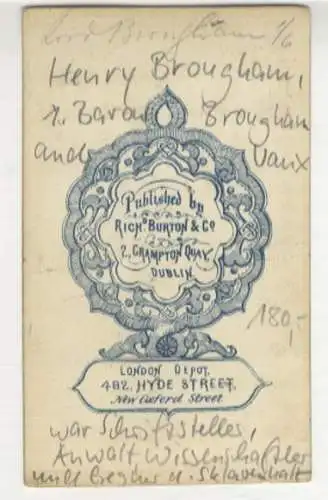 Lord Brougham 1/6
Henry Brougham,
1. Baron Brougham
and Vaux
Published by
RICHD BURTON & CO
2, CRAMPTON QUAY,
DUBLIN
180,-
LONDON DEPOT,
482, HYDE STREET,
New Oxford Street
war Schriftsteller,
Anwalt Wissenschaftler
und Gegner d. Sklaverei